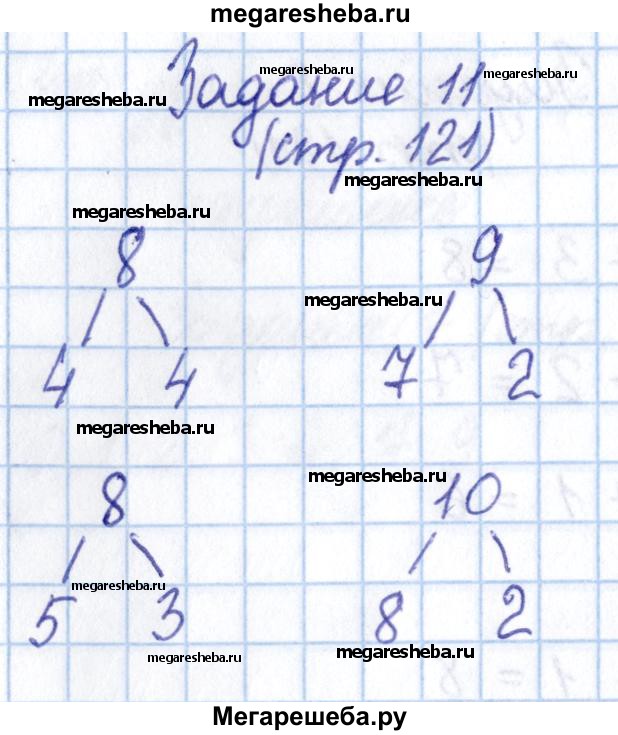 megaresheba.ru
megaresheba.ru megaresheba.ru
megaresheba.ru Задание 11
(стр. 121)
megaresheba.ru
megaresheba.ru
8 9
megaresheba.ru
4 4 7 2
megaresheba.ru
megaresheba.ru
8 10
megaresheba.ru
5 3 8 2
megaresheba.ru megaresheba.ru
Мегарешеба.ру